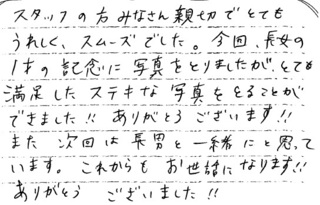 スタッフの方 みなさん 親切で とても
うれしく、スムーズでした。今回、長女の
1才の記念に 写真をとりましたが、とても
満足した ステキな 写真を とることが
できました!! ありがとう ございます!!
また 次回は 長男と 一緒に と 思って
います。これからも お世話に なります!!
ありがとう ございました!!